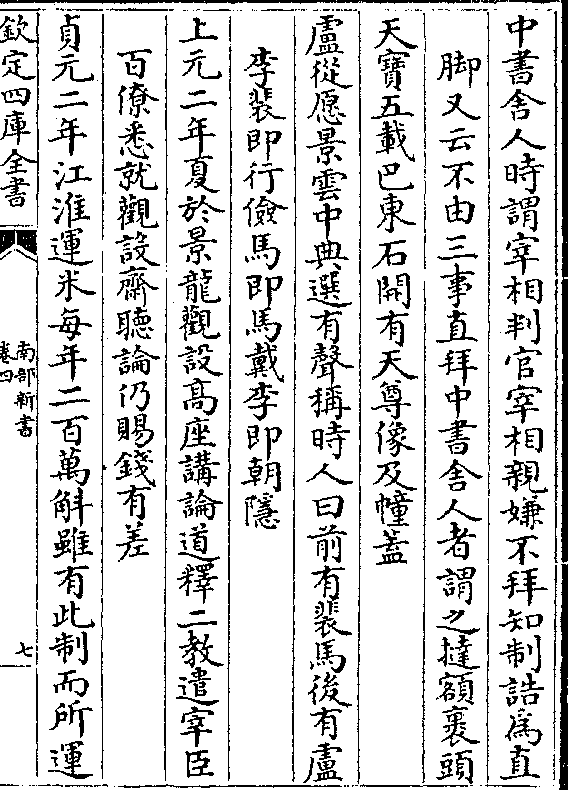 中書舍人時謂宰相判官宰相親嫌不拜知制誥爲直
脚又云不由三事直拜中書舍人者謂之撻額裹頭
天寶五載巴東石開有天尊像及幢蓋
盧從愿景雲中典選有聲稱時人曰前有裴馬後有盧
李裴即行儉馬即馬戴李即朝隱
上元二年夏於景龍觀設高座講論道釋二教遣宰臣
百僚悉就觀設齋聽論仍賜錢有差
貞元二年江淮運米每年二百萬斛雖有此制而所運
欽定四庫全書
南部新書
卷四
七